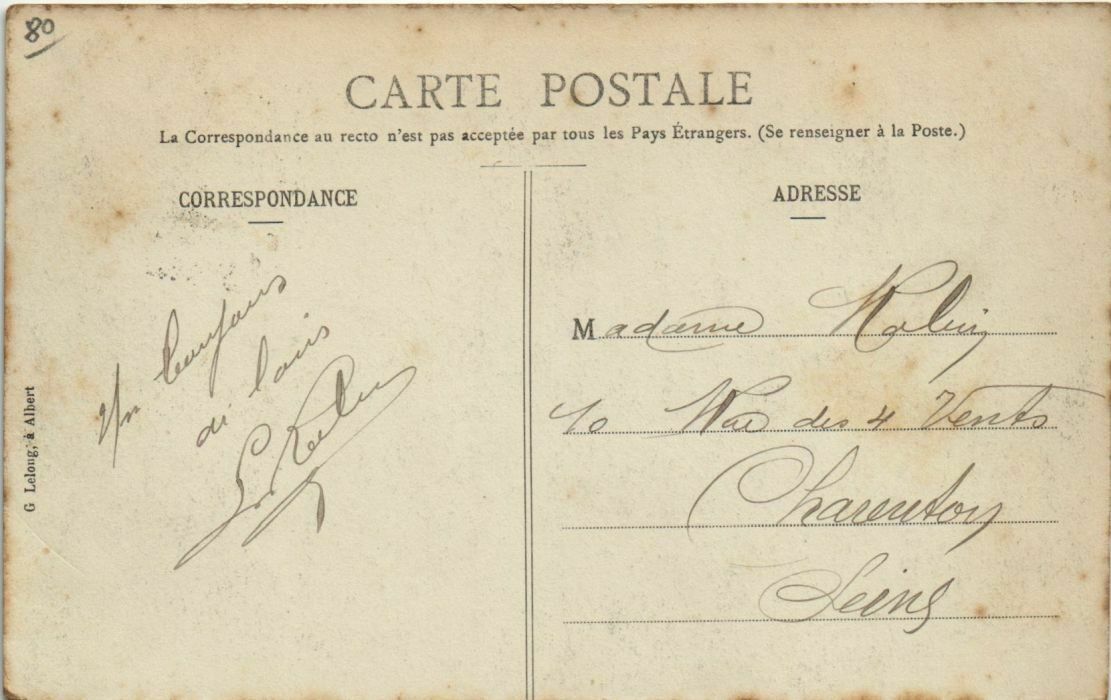 80
CARTE POSTALE
La Correspondance au recto n'est pas acceptée par tous les Pays Étrangers. (Se renseigner à la Poste.)
CORRESPONDANCE
ADRESSE
Un bonjour
de Louis
Madame
10 Rue des 4 Vents
Charenton
Seine
G Lelong, à Albert